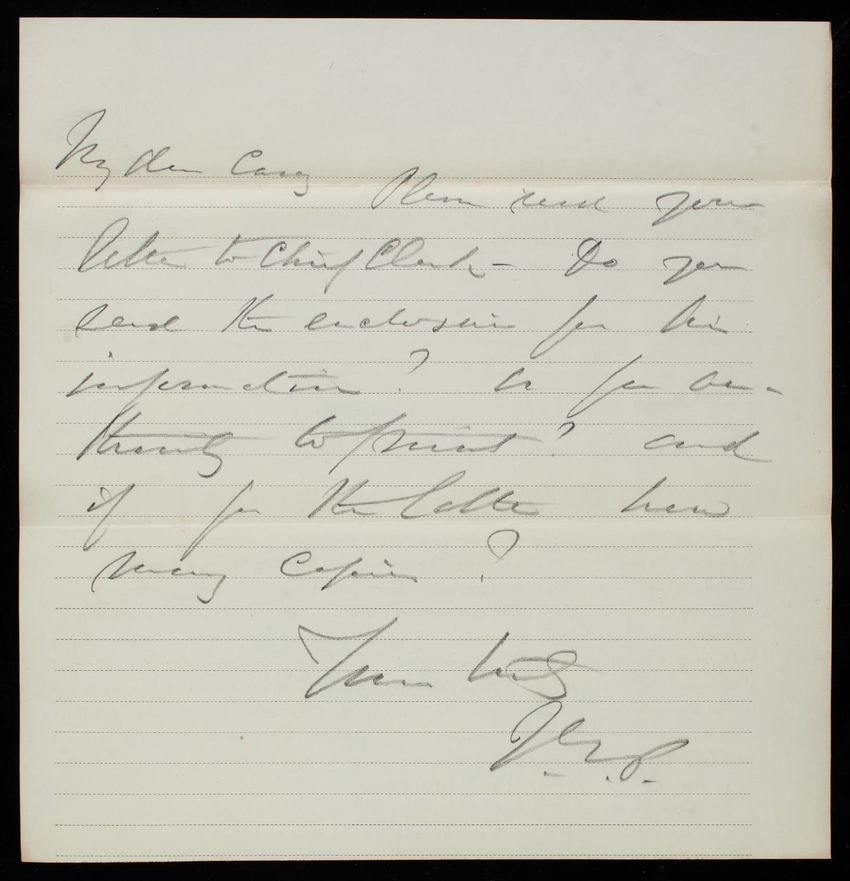 My dear Casey
Please read your
letter to Chief Clerk - Do you
send the enclosure for his
information? Or for au-
thority to print? and
if for the latter how
many copies?
Yours truly